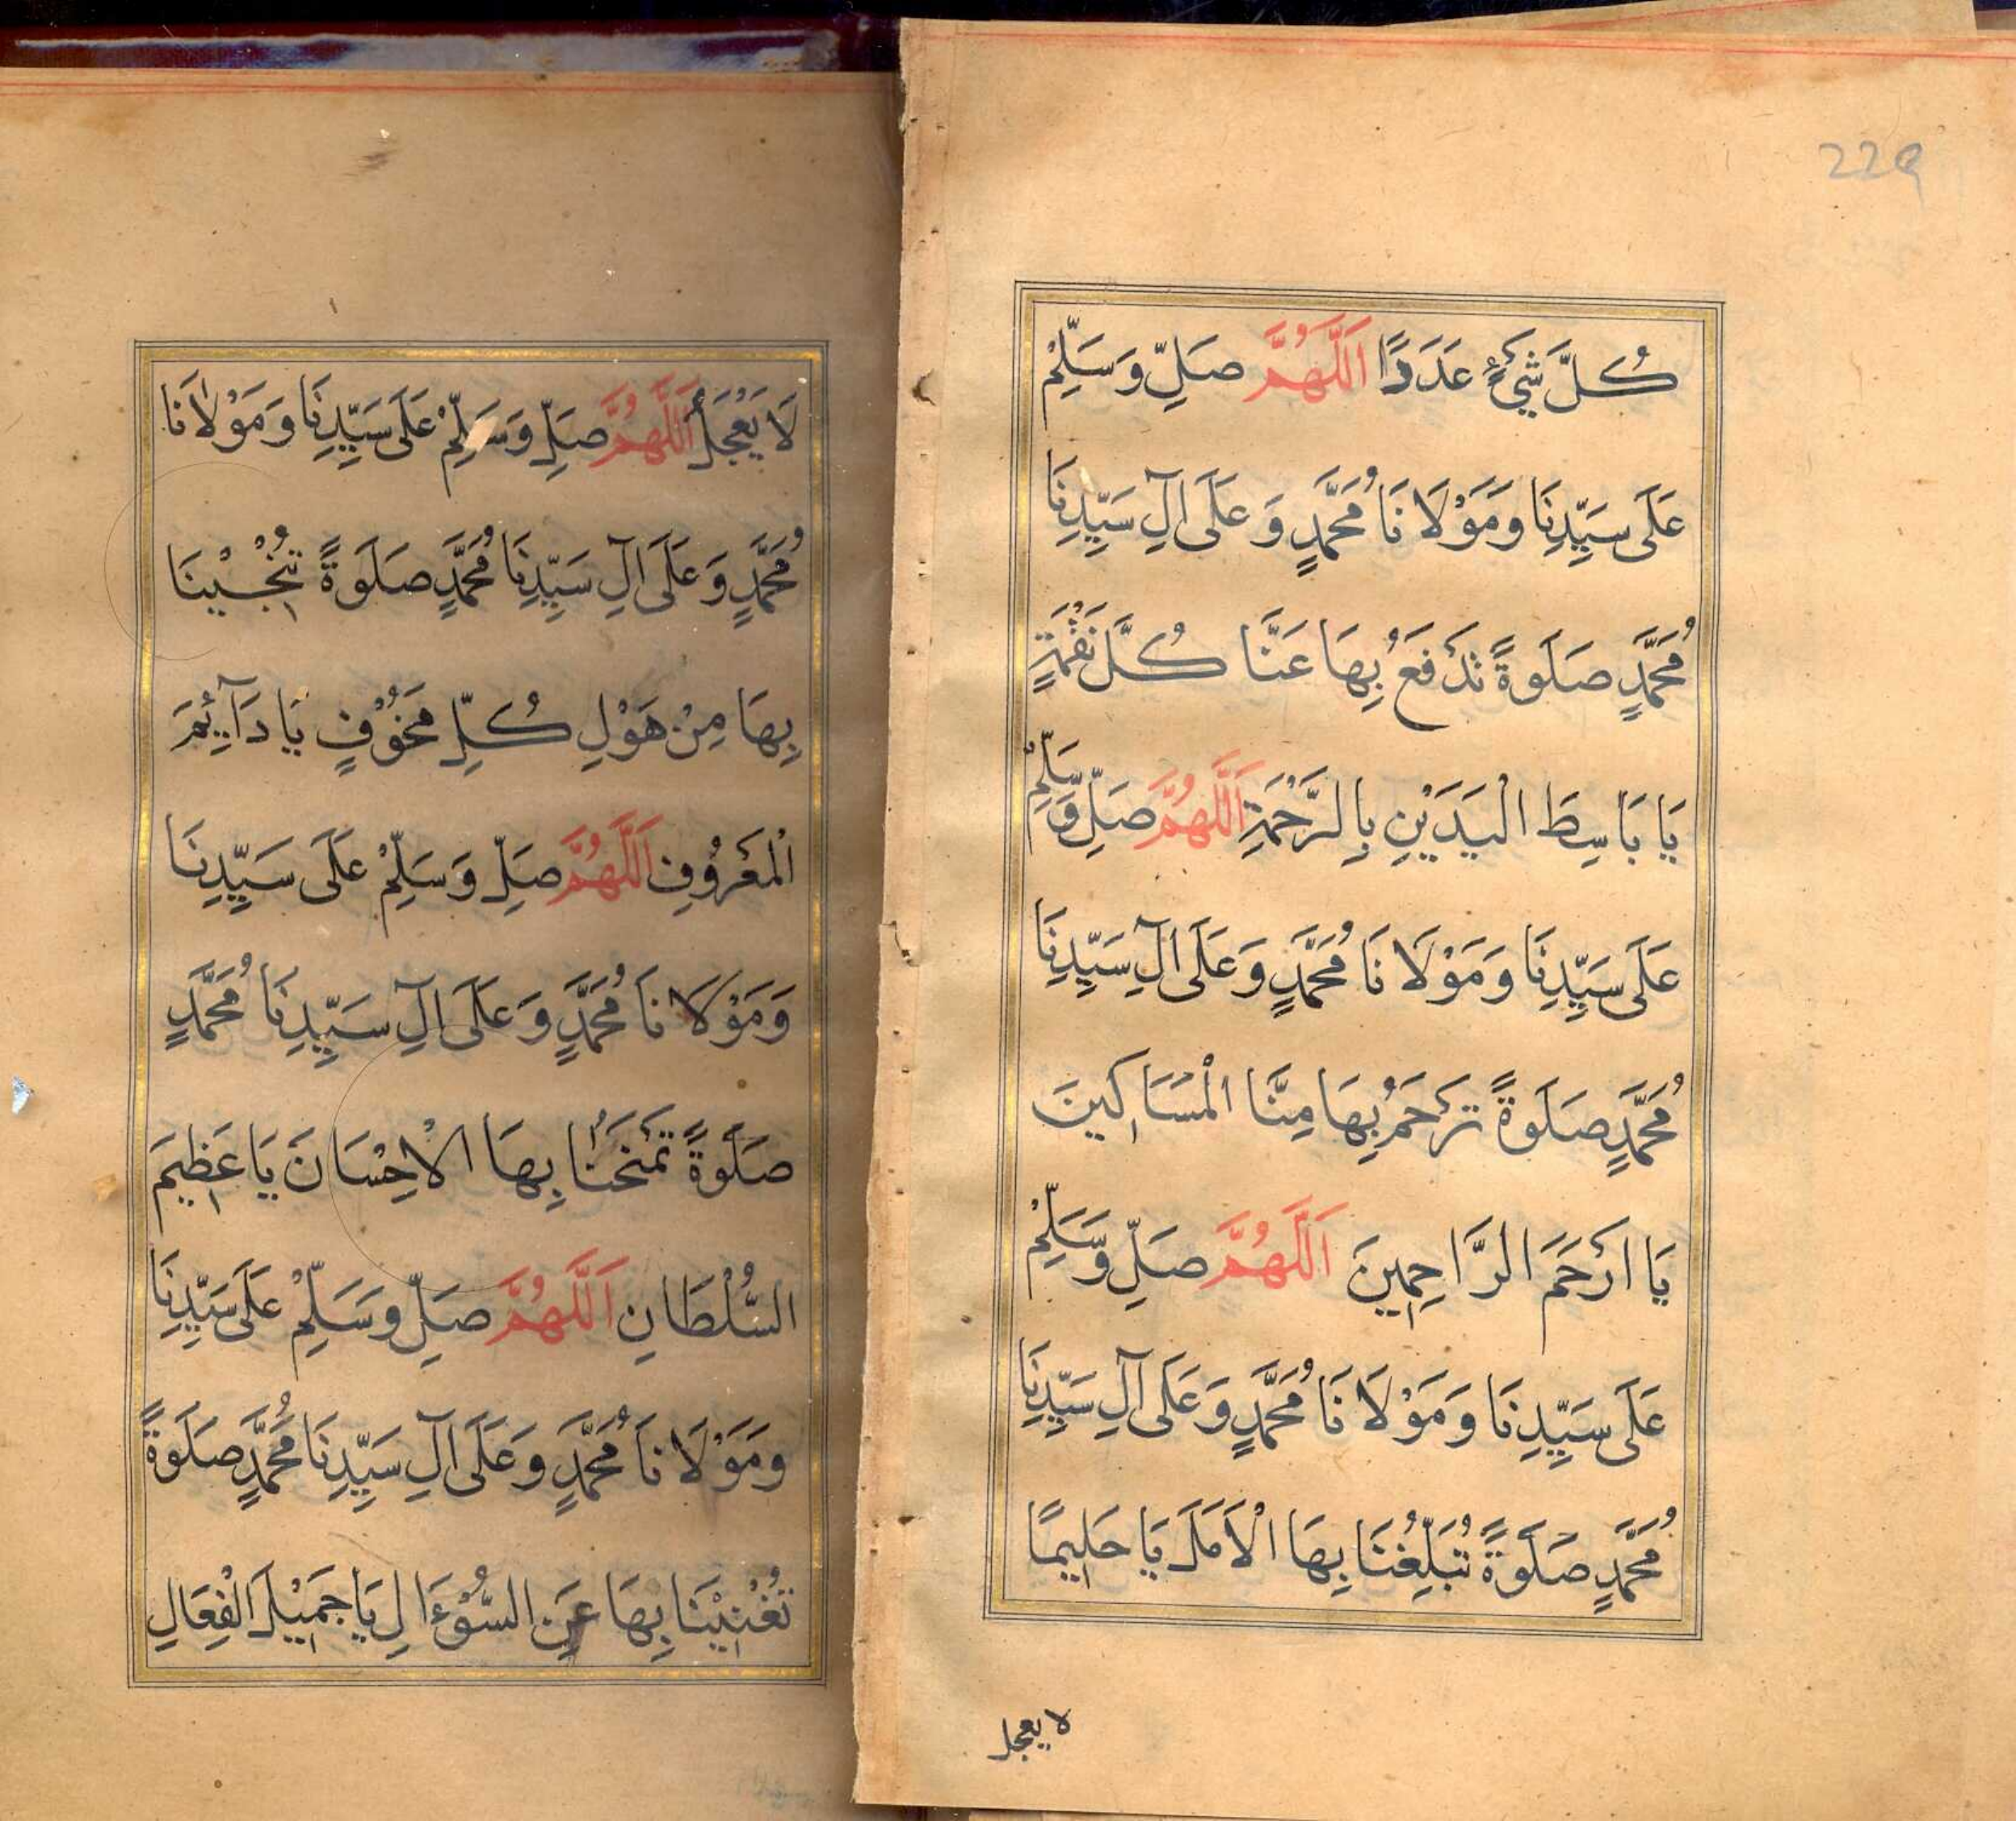 229
كُلَّ شَيْءٍ عَدَدًا اَللّٰهُمَّ صَلِّ وَسَلِّمْ
عَلَى سَيِّدِنَا وَمَوْلَانَا مُحَمَّدٍ وَعَلَى آلِ سَيِّدِنَا
مُحَمَّدٍ صَلَوةً تَدْفَعُ بِهَا عَنَّا كُلَّ نَقْمَةٍ
يَا بَاسِطَ الْيَدَيْنِ بِالرَّحْمَةِ اَللّٰهُمَّ صَلِّ وَسَلِّمْ
عَلَى سَيِّدِنَا وَمَوْلَانَا مُحَمَّدٍ وَعَلَى آلِ سَيِّدِنَا
مُحَمَّدٍ صَلَوةً تَرْحَمُ بِهَا مِنَّا الْمَسَاكِينَ
يَا اَرْحَمَ الرَّاحِمِينَ اَللّٰهُمَّ صَلِّ وَسَلِّمْ
عَلَى سَيِّدِنَا وَمَوْلَانَا مُحَمَّدٍ وَعَلَى آلِ سَيِّدِنَا
مُحَمَّدٍ صَلَوةً تُبَلِّغُنَا بِهَا الْاَمَلَ يَا حَلِيمًا
لا يعجل
لَا يَعْجَلُ اَللّٰهُمَّ صَلِّ وَسَلِّمْ عَلَى سَيِّدِنَا وَمَوْلَانَا
مُحَمَّدٍ وَعَلَى آلِ سَيِّدِنَا مُحَمَّدٍ صَلَوةً تُنْجِيْنَا
بِهَا مِنْ هَوْلِ كُلِّ مَخُوْفٍ يَا دَآئِمَ
الْمَعْرُوْفِ اَللّٰهُمَّ صَلِّ وَسَلِّمْ عَلَى سَيِّدِنَا
وَمَوْلَانَا مُحَمَّدٍ وَعَلَى آلِ سَيِّدِنَا مُحَمَّدٍ
صَلَوةً تَمْنَحُنَا بِهَا الْاِحْسَانَ يَا عَظِيمَ
السُّلْطَانِ اَللّٰهُمَّ صَلِّ وَسَلِّمْ عَلَى سَيِّدِنَا
وَمَوْلَانَا مُحَمَّدٍ وَعَلَى آلِ سَيِّدِنَا مُحَمَّدٍ صَلَوةً
تُغْنِيْنَا بِهَا عَنِ السُّوْءَالِ يَا جَمِيْلَ الْفِعَالِ